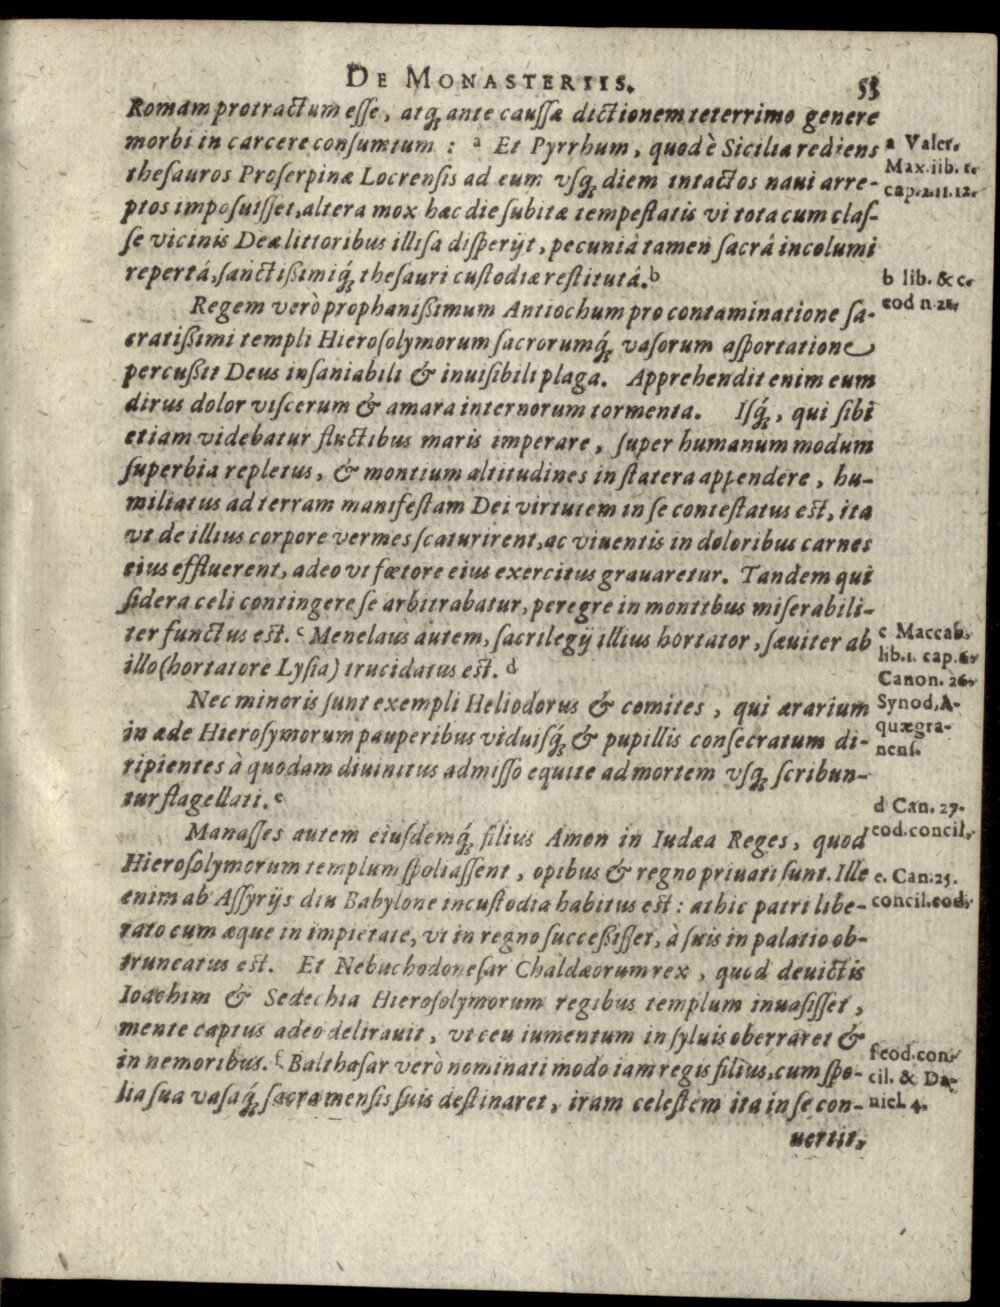 DE MONASTERIIS. 53
Romam protractum esse, atq́ꝫ ante caussæ dictionem teterrimo genere
morbi in carcere consumtum : a Et Pyrrhum, quod è Sicilia rediens
thesauros Proserpinæ Locrensis ad eum vsq́ꝫ diem intactos naui arre-
ptos imposuisset, altera mox hac die subitæ tempestatis vi tota cum clas-
se vicinis Deæ littoribus illisa disperijt, pecuniâ tamen sacrâ incolumi
repertá, sanctißimiq́ꝫ thesauri custodiæ restitutá. b
Regem verò prophanißimum Antiochum pro contaminatione sa-
cratißimi templi Hierosolymorum sacrorumq́ꝫ vasorum asportatione
percußit Deus insaniabili & inuisibili plaga. Apprehendit enim eum
dirus dolor viscerum & amara internorum tormenta. Isq́ꝫ, qui sibi
etiam videbatur fluctibus maris imperare, super humanum modum
superbia repletus, & montium altitudines in statera appendere, hu-
miliatus ad terram manifestam Dei virtutem in se contestatus est, ita
vt de illius corpore vermes scaturirent, ac viuentis in doloribus carnes
eius effluerent, adeo vt fœtore eius exercitus grauaretur. Tandem qui
sidera celi contingere se arbitrabatur, peregre in montibus miserabili-
ter functus est. c Menelaus autem, sacrilegij illius hortator, sæuiter ab
illo (hortatore Lysia) trucidatus est. d
Nec minoris sunt exempli Heliodorus & comites, qui ærarium
in æde Hierosymorum pauperibus viduisq́ꝫ & pupillis consecratum di-
ripientes à quodam diuinitus admisso equite ad mortem vsq́ꝫ scribun-
tur flagellati. e
Manasses autem eiusdemq́ꝫ filius Amon in Iudæa Reges, quod
Hierosolymorum templum spoliassent, opibus & regno priuati sunt. Ille
enim ab Assyrijs diu Babylone in custodia habitus est : at hic patri libe-
rato cum æque in impietate, vt in regno successisset, à suis in palatio ob-
truncatus est. Et Nebuchodonesar Chaldæorum rex, quod deuictis
Ioachim & Sedechia Hierosolymorum regibus templum inuasisset,
mente captus adeo delirauit, vt ceu iumentum in syluis oberraret &
in nemoribus. f Balthasar verò nominati modo iam regis filius, cum spo-
lia sua vasaq́ꝫ sacra mensis suis destinaret, iram celestem ita in se con-
uertit,
a Valer.
Max. lib. 1.
cap. 2. 11. 12.
b lib. & c.
eod n. 21.
c Maccab.
lib. 1. cap. 6.
Canon. 26.
Synod. A-
quægra-
nens.
d Can. 27.
eod. concil.
e. Can. 25.
concil. eod.
f eod. con-
cil. & Da-
niel. 4.